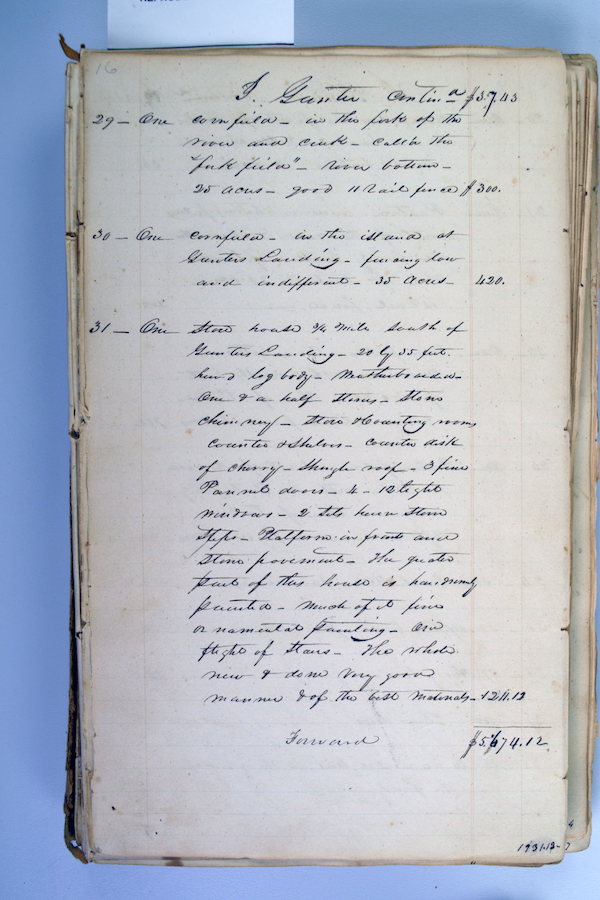 16
J. Gunter Contin—d $3.743
29 — One cornfield — in the fork of the
river and creek — call'd the
"fork field" — river bottom —
25 acres — good 11 rail fence $300.
30 — One cornfield — in the island at
Gunters Landing — fencing low
and indifferent — 35 acres — 420.
31 — One Store house 3/4 mile South of
Gunters Landing — 20 by 35 feet.
hewd log body — Weatherboarded —
One & a half Stories — Stone
chimney — Store & Counting rooms
Counter & Shelves — counter desk
of cherry — Shingle roof — 3 fine
Pannel doors — 4 — 12 light
windows — 2 sets hewn Stone
Steps — Platform in front and
Stone pavement — The greater
part of this house is handsomely
painted — Much of it fine
ornamental painting — One
flight of Stairs — The whole
new & done Very good
manner & of the best Materials — 1211.12
Forward $5.674.12
1931.13-